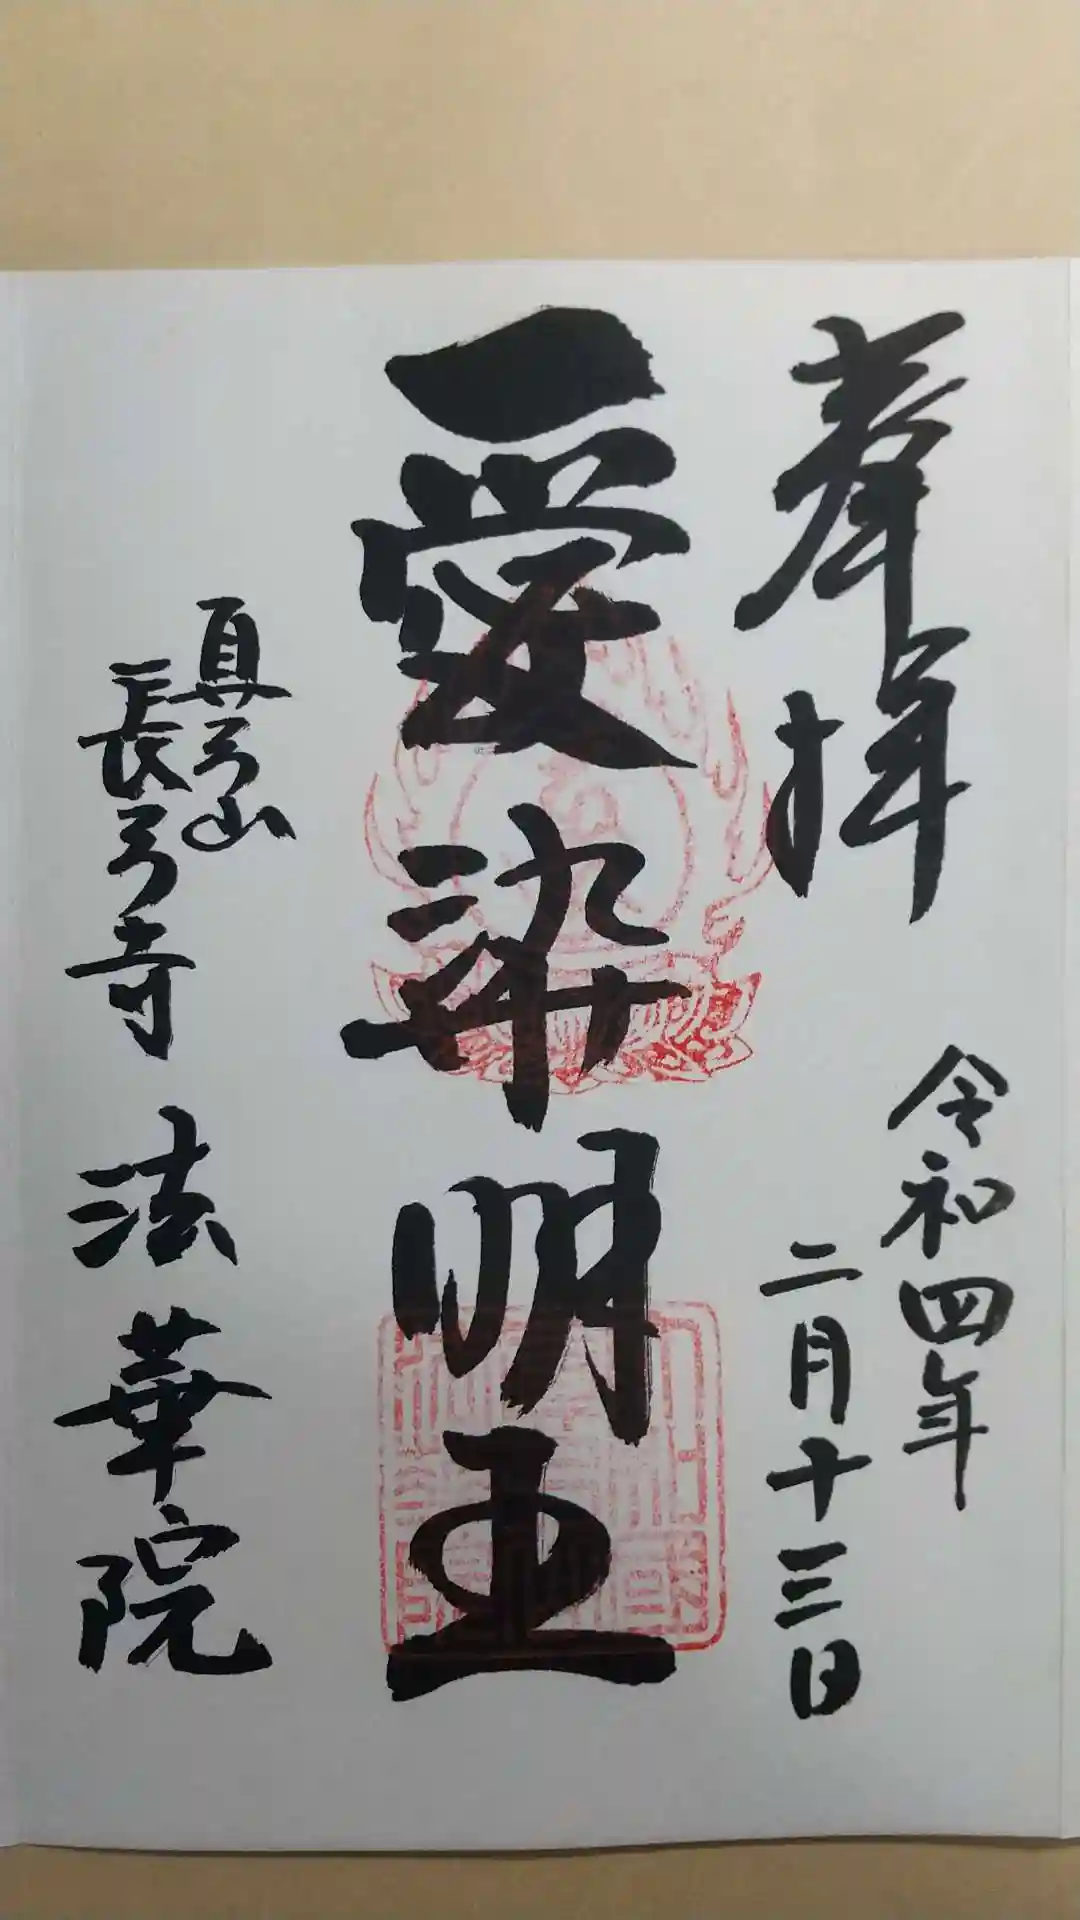 奉拝
令和四年
二月十三日
愛染明王
真弓山
長弓寺 法華院